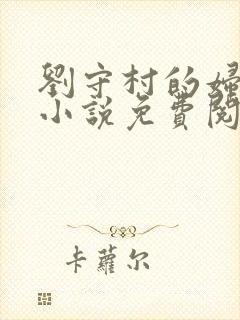 劉守村的婦
小說免費閱
卡蘿尔